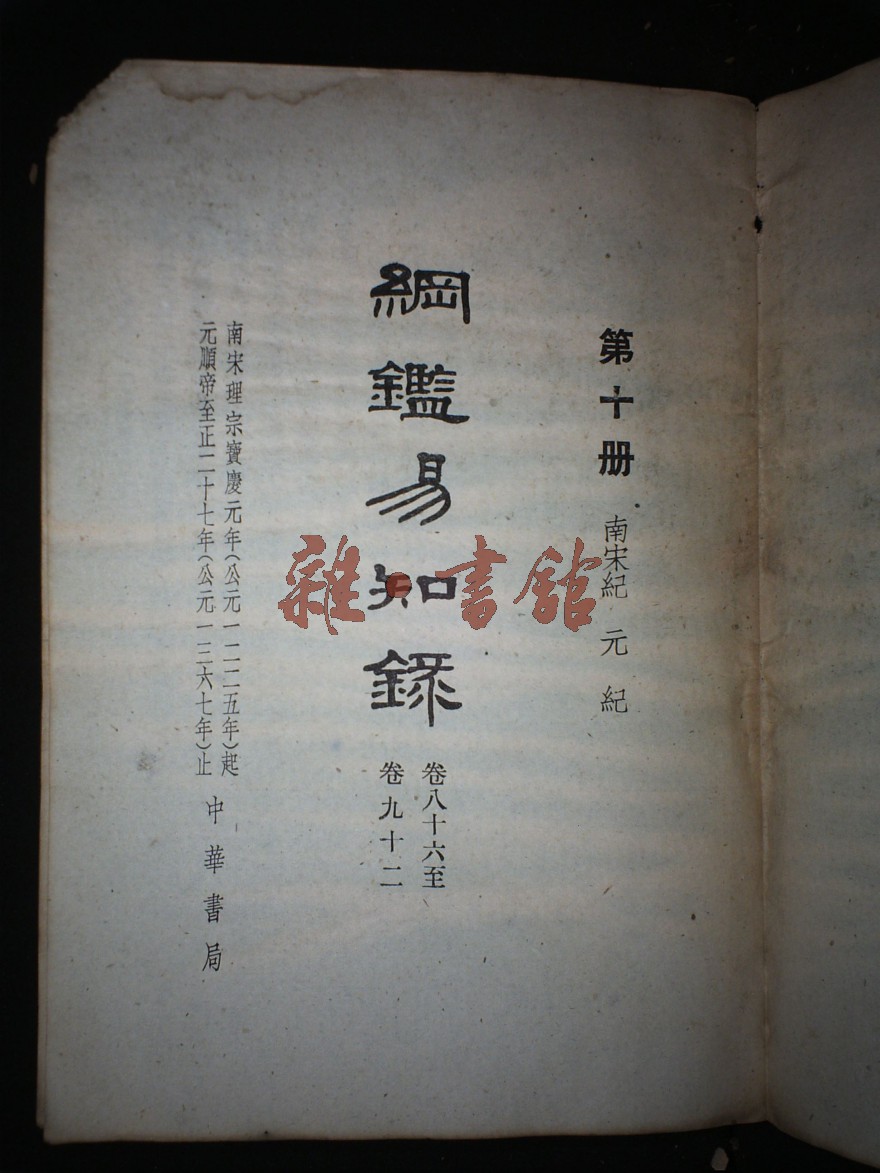 第十册 南宋紀 元紀
綱鑑易知錄
卷八十六至
卷九十二
南宋理宗寶慶元年(公元一二二五年)起
元順帝至正二十七年(公元一三六七年)止
中華書局
雜·書館